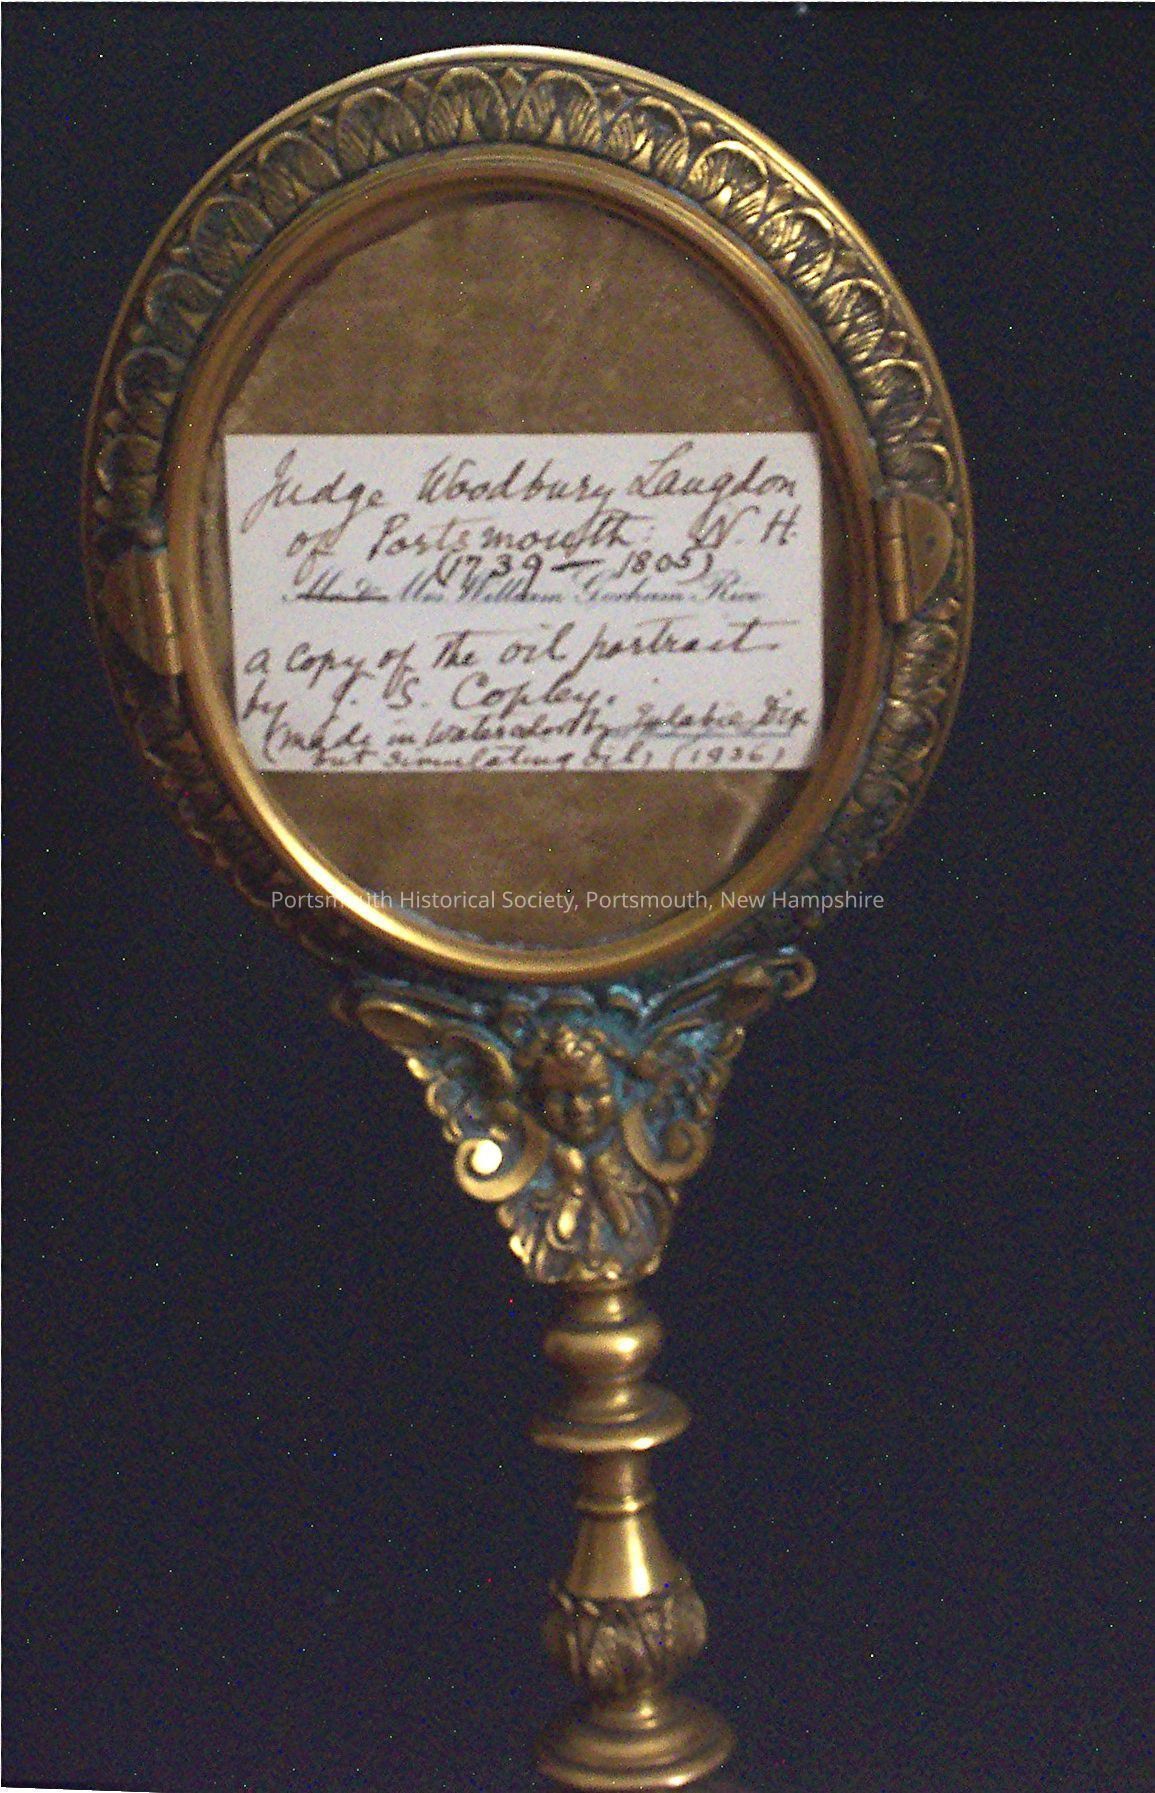 Judge Woodbury Langdon
of Portsmouth: N. H.
(1739 — 1805)
Mrs. William Gorham Rice
a copy of the oil portrait
by J. S. Copley.
(made in watercolor by Eulabie Dix
but simulating oil) (1936)
Portsmouth Historical Society, Portsmouth, New Hampshire